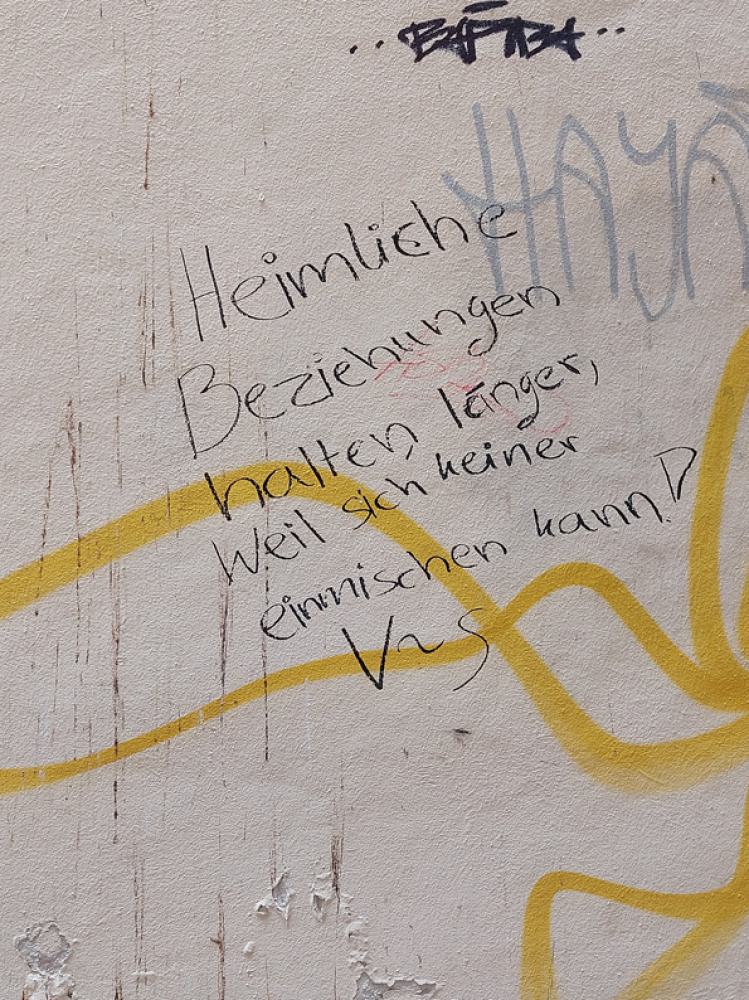 HAJA
Heimliche
Beziehungen
halten länger,
Weil sich keiner
einmischen kann!